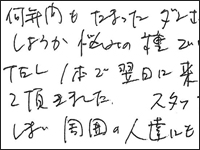 何年内もたまった ダンボ
しようか悩みの種でい
TEL 1本で翌日に来
2頂きました. スタッ
しば 周囲の人達にも